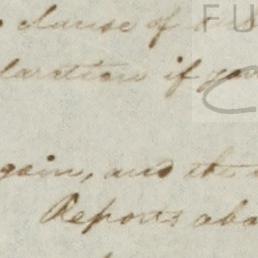 clause of
laration if you
gain, and the
Reports abo